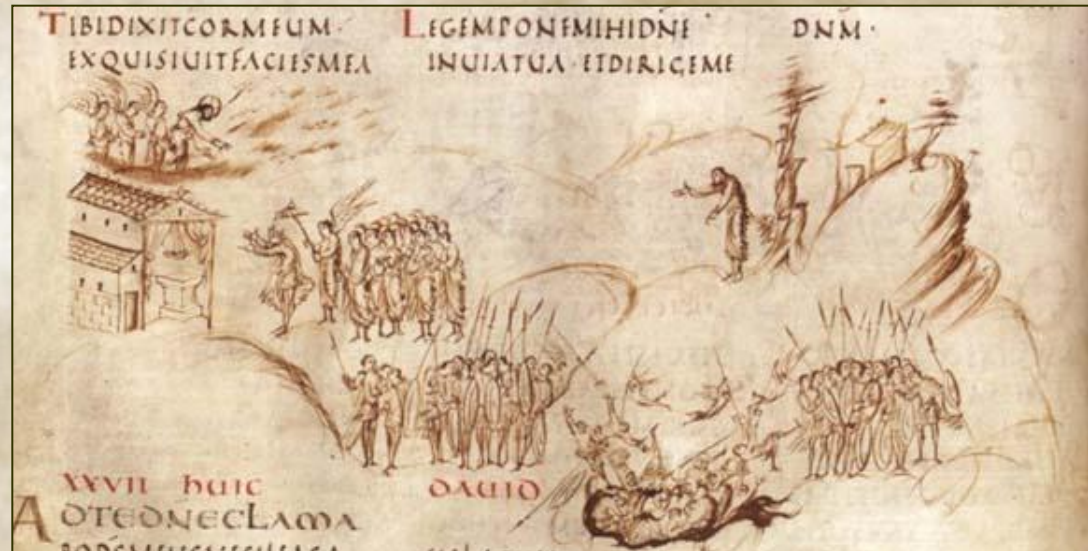 TIBIDIXITCORMEUM·
EXQUISIUITFACIESMEA
LEGEMPONEMIHIDNE
INUIATUA·ETDIRIGEME
DNM·
XXVII huic DAUID
ADTEDNECLAMA